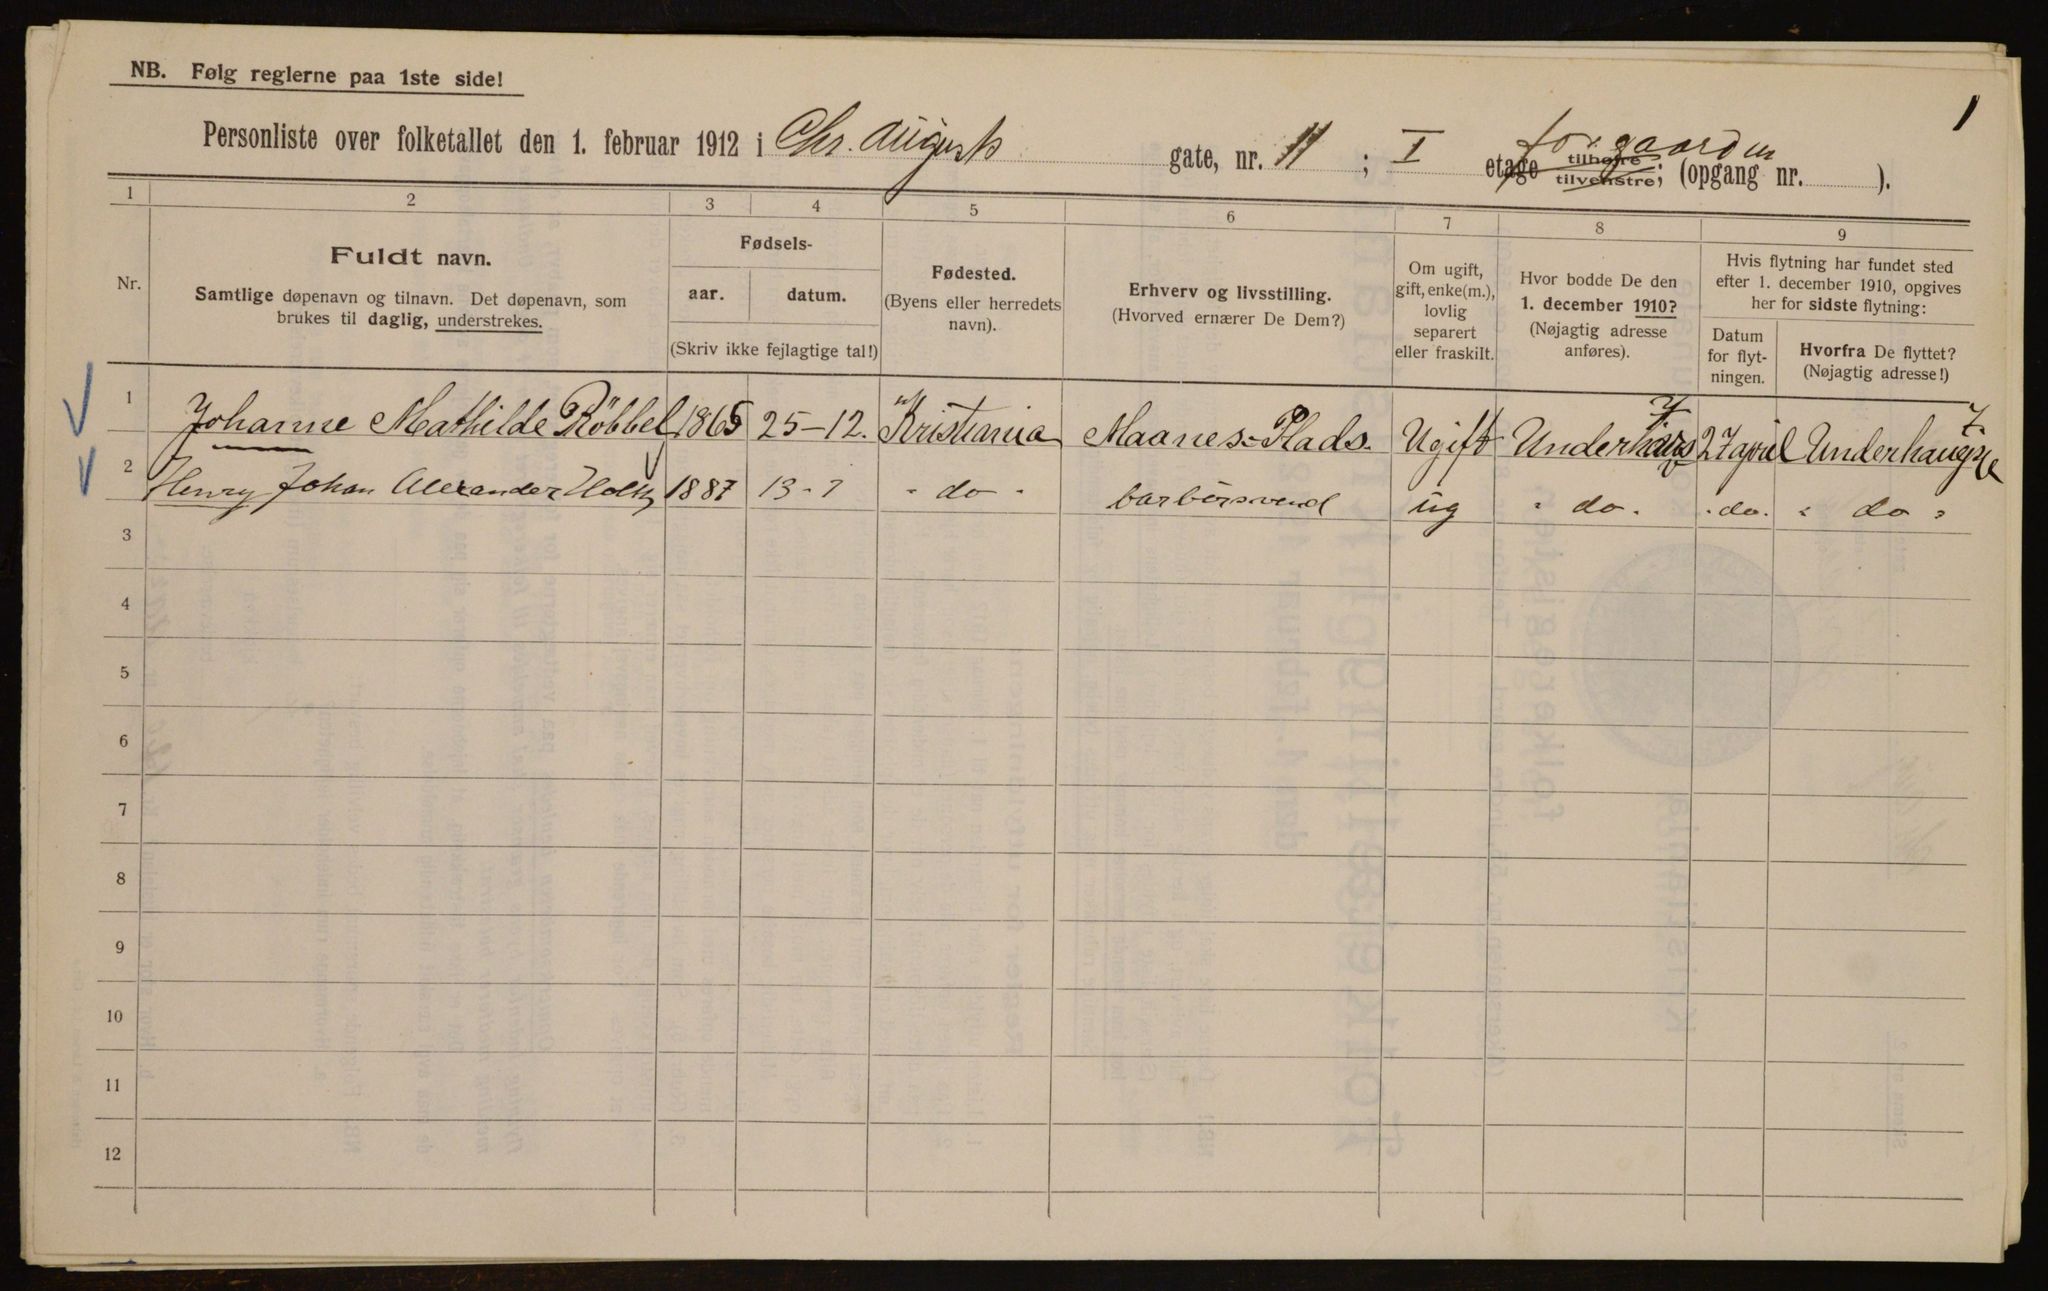 NB. Følg reglerne paa 1ste side!
1
Personliste over folketallet den 1. februar 1912 i Chr. Augusts gate, nr. 11 ; I etage tilhøire tilvenstre; forgaarden (opgang nr. ).
1 2 3 4 5 6 7 8 9
Nr.
Fuldt navn.
Samtlige døpenavn og tilnavn. Det døpenavn, som
brukes til daglig, understrekes.
Fødsels-
aar. datum.
(Skriv ikke fejlagtige tal!)
Fødested.
(Byens eller herredets
navn).
Erhverv og livsstilling.
(Hvorved ernærer De Dem?)
Om ugift,
gift, enke(m.),
lovlig
separert
eller fraskilt.
Hvor bodde De den
1. december 1910?
(Nøjagtig adresse
anføres).
Hvis flytning har fundet sted
efter 1. december 1910, opgives
her for sidste flytning:
Datum
for flyt-
ningen.
Hvorfra De flyttet?
(Nøjagtig adresse!)
1 Johanne Mathilde Röbbel 1865 25-12. Kristiania Maanes-Plads. Ugift 7 27 april 7.
2 Henry Johan Alexander 1887 13-7 " do " barbersvend ug " do. . do. " do "
3
4
5
6
7
8
9
10
11
12